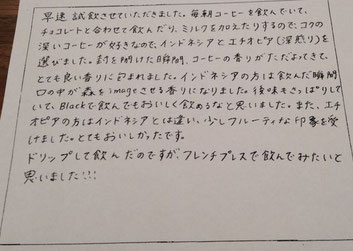 早速試飲させていただきました。毎朝コーヒーを飲んでいて、
チョコレートと合わせて飲んだり、ミルクを加えたりするので、コクの
深いコーヒーが好きなので、インドネシアとエチオピア(深煎り)を
選びました。封を開けた瞬間、コーヒーの香りがただよってきて、
とても良い香りに包まれました。インドネシアの方は飲んだ瞬間
口の中が森をimageさせる香りになりました。後味もさっぱりして
いて、Blackで飲んでもおいしく飲めるなと思いました。また、エチ
オピアの方はインドネシアとは違い、少しフルーティな印象を受
けました。とてもおいしかったです。
ドリップして飲んだのですが、フレンチプレスで飲んでみたいと
思いました!!!